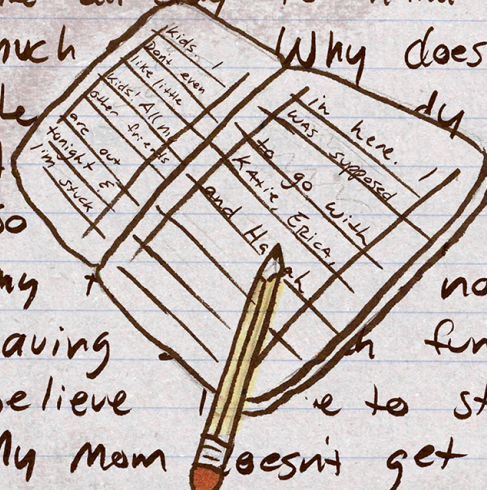 much Why does
dy
kids. I
Dont even
like little
kids! All my
other friends
are out
tonight &
I'm stuck
in here. I
was supposed
to go with
Katie, Erica,
and Ha ah
So
my no
aving fun
elieve I e to st
My Mom doesn't get